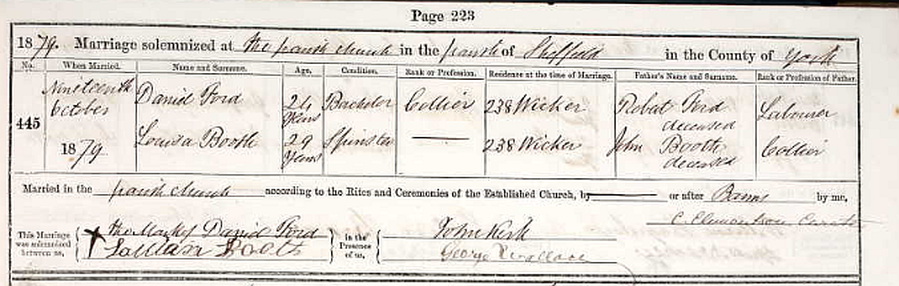 Page 223
1879. Marriage solemnized at the parish church in the parish of Sheffield in the County of York
No. When Married. Name and Surname. Age. Condition. Rank or Profession. Residence at the time of Marriage. Father's Name and Surname. Rank or Profession of Father.
445 Nineteenth October 1879 Daniel Ford 24 Years Bachelor Collier 238 Wicker Robert Ford deceased Labourer
Louisa Booth 29 Years Spinster 238 Wicker John Booth deceased Collier
Married in the parish church according to the Rites and Ceremonies of the Established Church, by or after Banns by me,
C. Curate
This Marriage was solemnized between us, the Mark of Daniel Ford In the Presence of us, John Kirk
Booth George Wallace